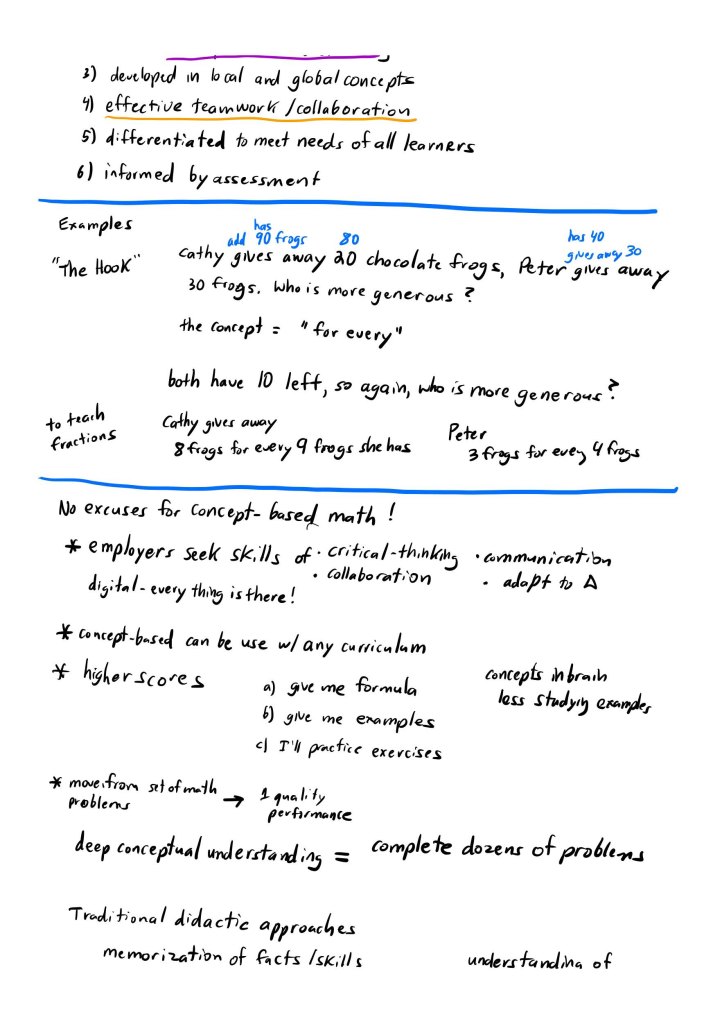 3) developed in local and global concepts
4) effective teamwork / collaboration
5) differentiated to meet needs of all learners
6) informed by assessment
Examples
has
add 90 frogs 80 has 40
gives away 30
"The Hook" Cathy gives away 20 chocolate frogs, Peter gives away
30 frogs. Who is more generous?
the concept = "for every"
both have 10 left, so again, who is more generous?
to teach
fractions
Cathy gives away
8 frogs for every 9 frogs she has
Peter
3 frogs for evey 4 frogs
No excuses for concept-based math!
* employers seek skills of · critical-thinking · communication
· collaboration · adapt to Δ
digital - every thing is there!
* concept-based can be use w/ any curriculum
* higher scores
a) give me formula
b) give me examples
c) I'll practice exercises
concepts in brain
less studying examples
* move from set of math
problems → 1 quality
performance
deep conceptual understanding = complete dozens of problems
Traditional didactic approaches
memorization of facts / skills understanding of